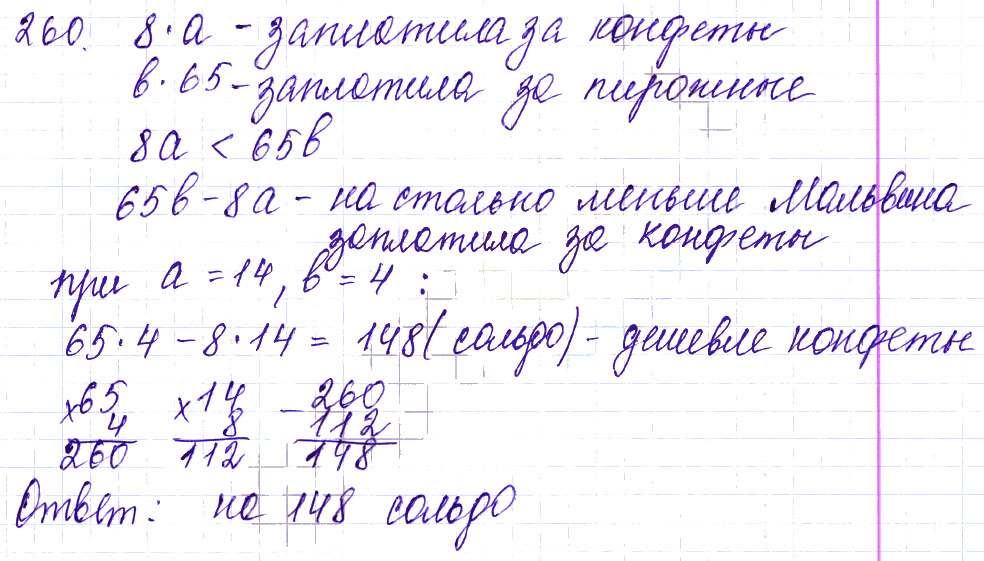 260. 8·a - заплатила за конфеты
в·65 - заплатила за пирожные
8а < 65в
65в - 8а - на столько меньше Мальвина
заплатила за конфеты
при а = 14, в = 4 :
65·4 - 8·14 = 148 (сольдо) - дешевле конфеты
×65 ×14 - 260
4 8 112
260 112 148
Ответ: на 148 сольдо